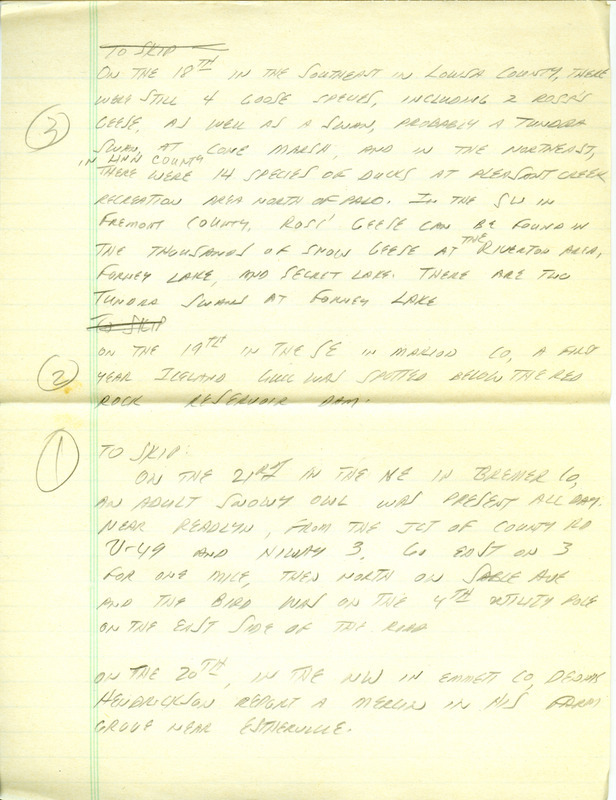 TO SKIP
ON THE 18TH IN THE SOUTHEAST IN LOUISA COUNTY, THERE
WERE STILL 4 GOOSE SPECIES, INCLUDING 2 ROSS'S
③ GEESE, AS WELL AS A SWAN, PROBABLY A TUNDRA
SWAN, AT CONE MARSH, AND IN THE NORTHEAST,
IN LINN COUNTY
THERE WERE 14 SPECIES OF DUCKS AT PLEASANT CREEK
RECREATION AREA NORTH OF PALO. IN THE SW IN
FREMONT COUNTY, ROSS' GEESE CAN BE FOUND IN
THE THOUSANDS OF SNOW GEESE AT THE RIVERTON AREA,
FORNEY LAKE, AND SECRET LAKE. THERE ARE TWO
TUNDRA SWANS AT FORNEY LAKE
TO SKIP
ON THE 19TH IN THE SE IN MARION CO, A FIRST
② YEAR ICELAND GULL WAS SPOTTED BELOW THE RED
ROCK RESERVOIR DAM.
① TO SKIP:
ON THE 21ST IN THE NE IN BREMER CO,
AN ADULT SNOWY OWL WAS PRESENT ALL DAY.
NEAR READLYN, FROM THE JCT OF COUNTY RD
V-49 AND HIWAY 3, GO EAST ON 3
FOR ONE MILE, THEN NORTH ON SABLE AVE
AND THE BIRD WAS ON THE 4TH UTILITY POLE
ON THE EAST SIDE OF THE ROAD
ON THE 20TH, IN THE NW IN EMMETT CO,
HENDRICKSON REPORT A MERLIN IN HIS FARM
GROVE NEAR ESTHERVILLE.